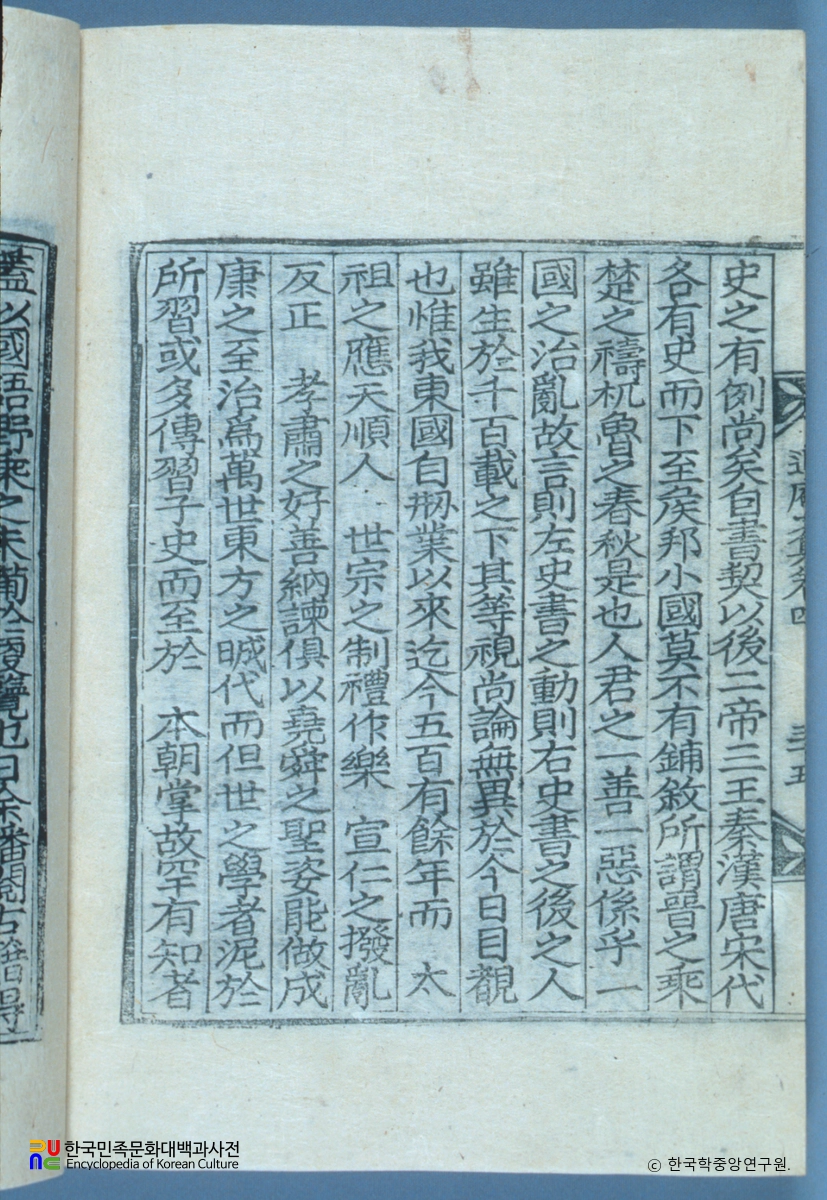 史之有例尚矣自書契以後二帝三王秦漢唐宋代
各有史而下至矦邦小國莫不有鋪敘所謂晉之乘
楚之禱杌魯之春秋是也人君之一善一惡係乎一
國之治亂故言則左史書之動則右史書之後之人
雖生於千百載之下其等視尚論無異於今日目覩
也惟我東國自刱業以來迄今五百有餘年而 太
祖之應天順人 世宗之制禮作樂 宣仁之撥亂
反正 孝肅之好善納諫俱以堯舜之聖姿能做成
康之至治爲萬世東方之晠代而但世之學者泥於
所習或多傳習子史而至於 本朝掌故罕有知者
卷四
三五
한국민족문화대백과사전
Encyclopedia of Korean Culture
© 한국학중앙연구원.